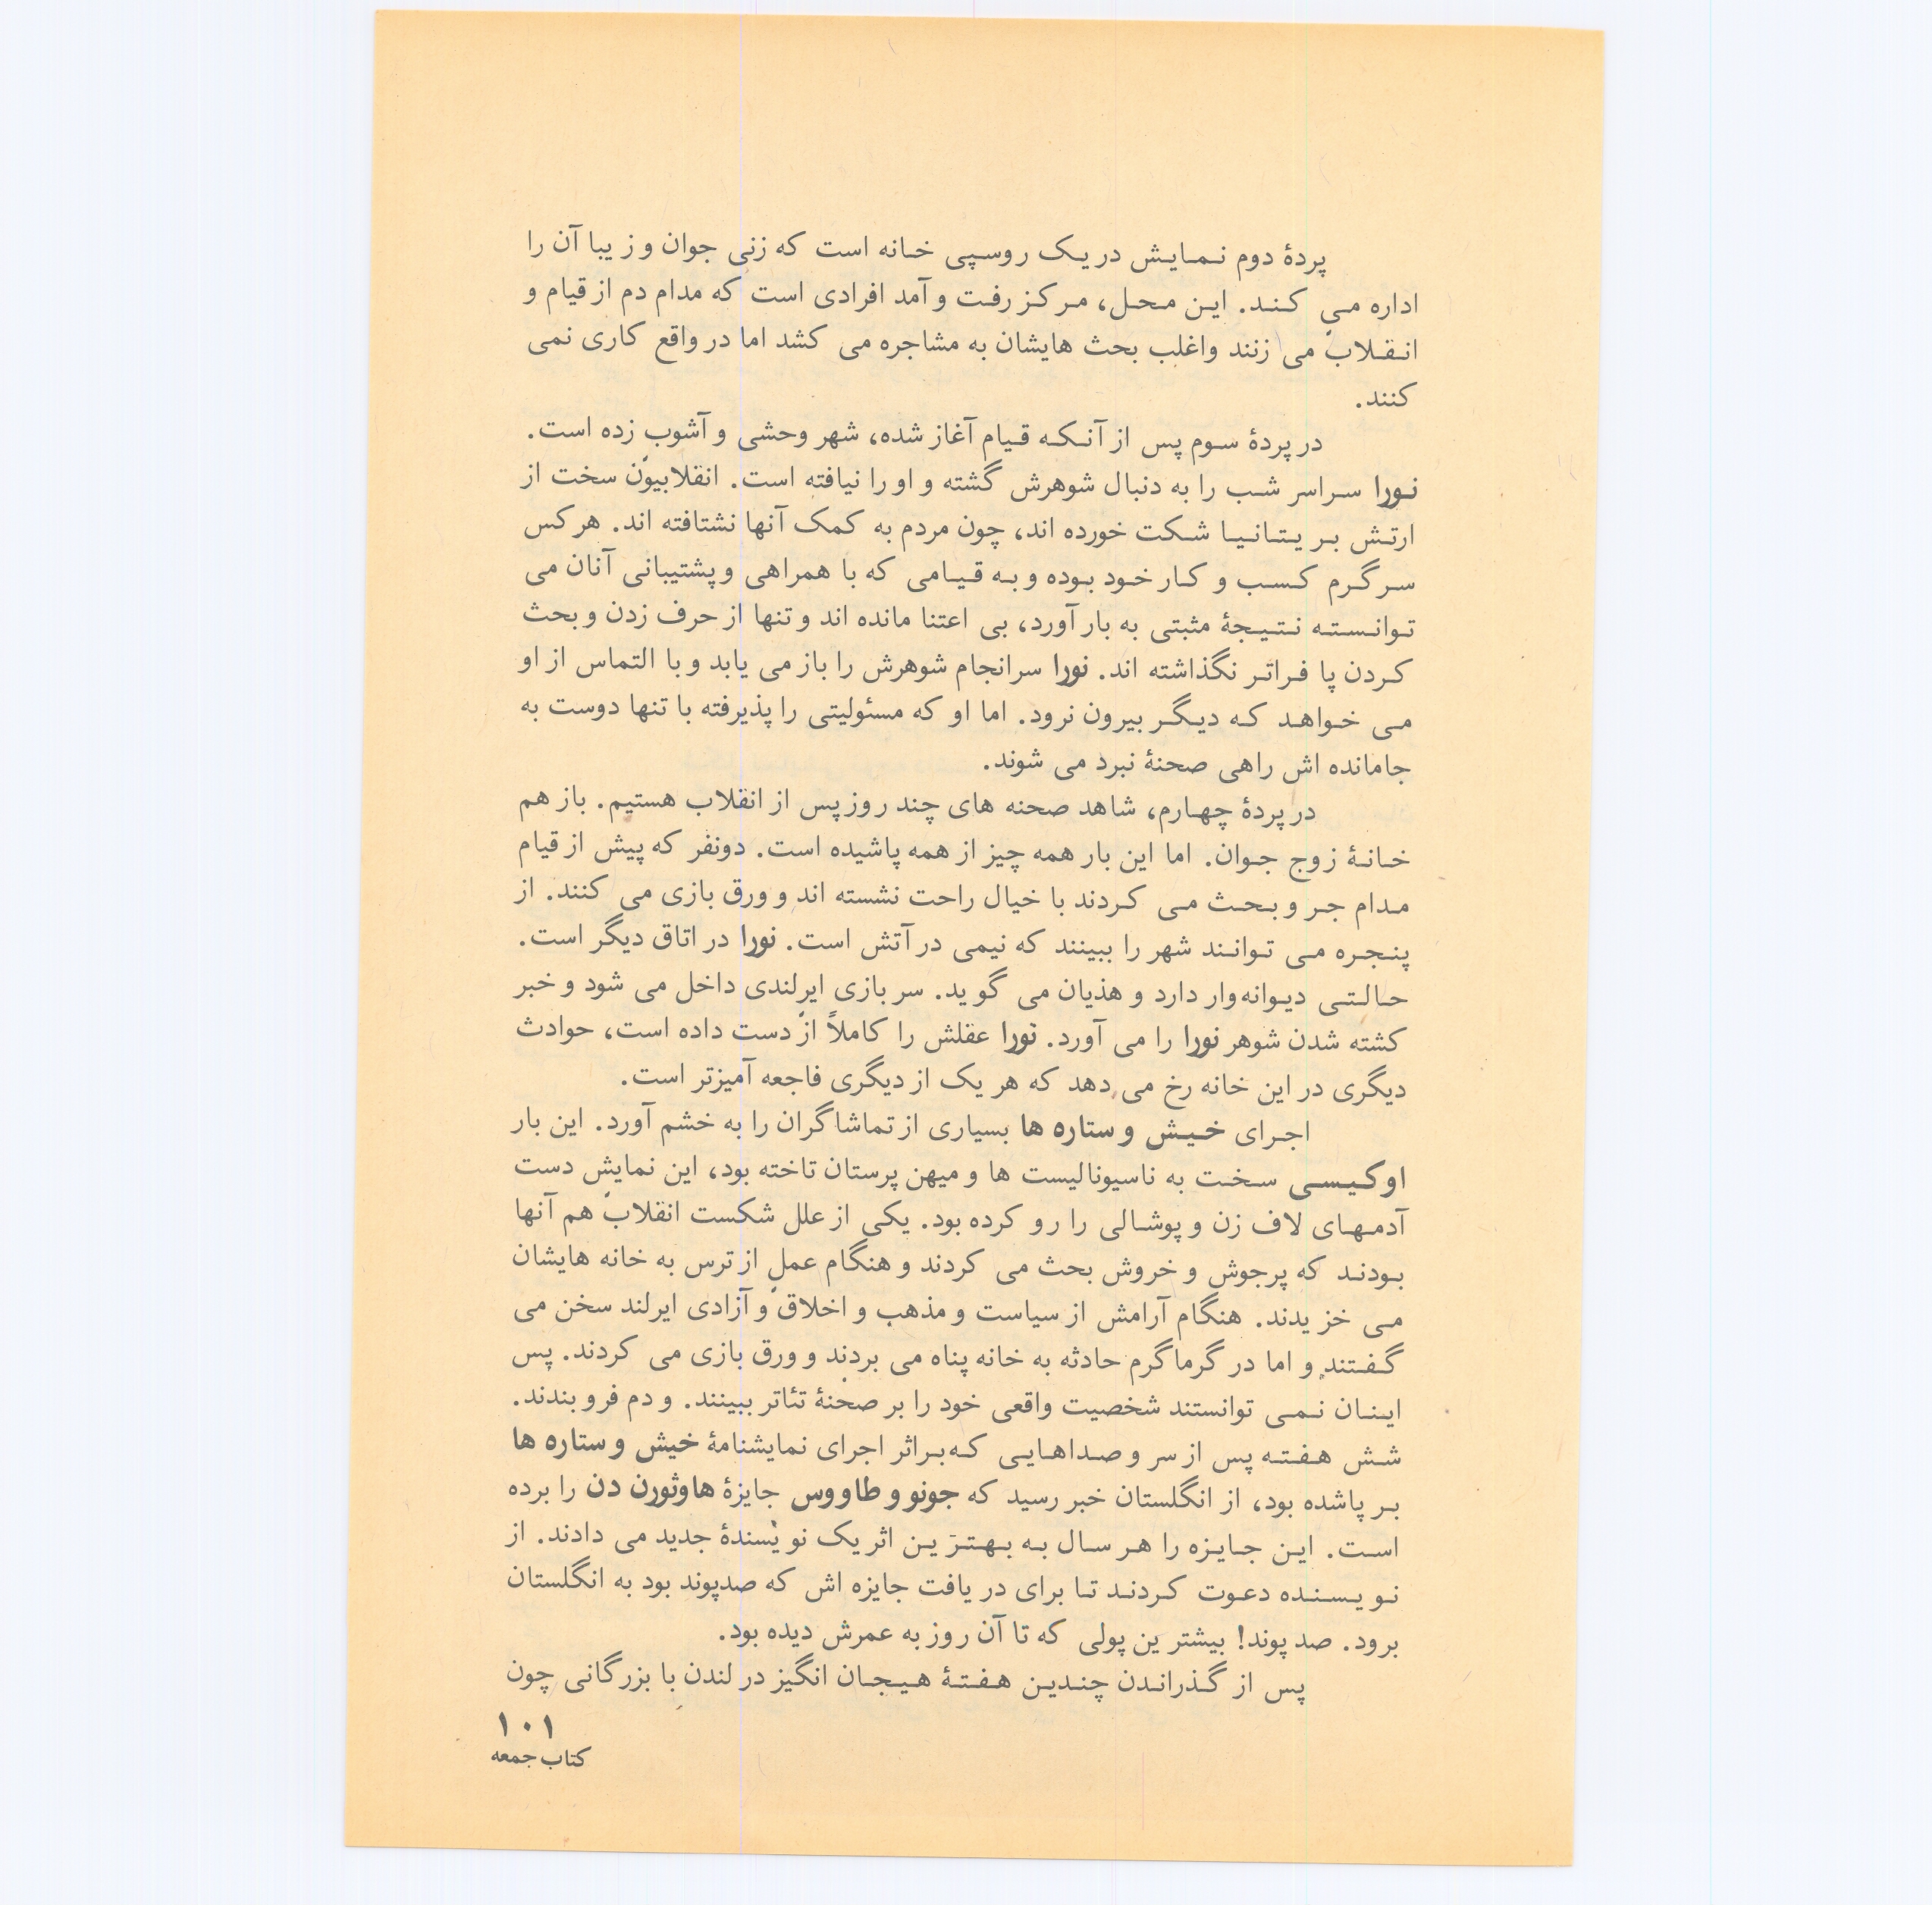 پردهٔ دوم نمایش در یک روسپی خانه است که زنی جوان و زیبا آن را
اداره می کند. این محل، مرکز رفت و آمد افرادی است که مدام دم از قیام و
انقلاب می زنند واغلب بحث هایشان به مشاجره می کشد اما در واقع کاری نمی
کنند.
در پردهٔ سوم پس از آنکه قیام آغاز شده، شهر وحشی و آشوب زده است.
نورا سراسر شب را به دنبال شوهرش گشته و او را نیافته است. انقلابیون سخت از
ارتش بریتانیا شکت خورده اند، چون مردم به کمک آنها نشتافته اند. هرکس
سرگرم کسب و کار خود بوده و به قیامی که با همراهی و پشتیبانی آنان می
توانسته نتیجهٔ مثبتی به بار آورد، بی اعتنا مانده اند و تنها از حرف زدن و بحث
کردن پا فراتر نگذاشته اند. نورا سرانجام شوهرش را باز می یابد و با التماس از او
می خواهد که دیگر بیرون نرود. اما او که مسئولیتی را پذیرفته با تنها دوست به
جامانده اش راهی صحنهٔ نبرد می شوند.
در پردهٔ چهارم، شاهد صحنه های چند روز پس از انقلاب هستیم. باز هم
خانهٔ زوج جوان. اما این بار همه چیز از همه پاشیده است. دونفر که پیش از قیام
مدام جر و بحث می کردند با خیال راحت نشسته اند و ورق بازی می کنند. از
پنجره می توانند شهر را ببینند که نیمی در آتش است. نورا در اتاق دیگر است.
حالتی دیوانه وار دارد و هذیان می گوید. سربازی ایرلندی داخل می شود و خبر
کشته شدن شوهر نورا را می آورد. نورا عقلش را کاملاً از دست داده است، حوادث
دیگری در این خانه رخ می دهد که هر یک از دیگری فاجعه آمیزتر است.
اجرای خیش و ستاره ها بسیاری از تماشاگران را به خشم آورد. این بار
اوکیسی سخت به ناسیونالیست ها و میهن پرستان تاخته بود، این نمایش دست
آدمهای لاف زن و پوشالی را رو کرده بود. یکی از علل شکست انقلاب هم آنها
بودند که پرجوش و خروش بحث می کردند و هنگام عمل از ترس به خانه هایشان
می خزیدند. هنگام آرامش از سیاست و مذهب و اخلاق و آزادی ایرلند سخن می
گفتند و اما در گرماگرم حادثه به خانه پناه می بردند و ورق بازی می کردند. پس
اینان نمی توانستند شخصیت واقعی خود را بر صحنهٔ تئاتر ببینند. و دم فرو بندند.
شش هفته پس از سر و صداهایی که براثر اجرای نمایشنامهٔ خیش و ستاره ها
بر پاشده بود، از انگلستان خبر رسید که جونو و طاووس جایزهٔ هاوثورن دن را برده
است. این جایزه را هر سال به بهترین اثر یک نویسندهٔ جدید می دادند. از
نویسنده دعوت کردند تا برای دریافت جایزه اش که صدپوند بود به انگلستان
برود. صد پوند! بیشترین پولی که تا آن روز به عمرش دیده بود.
پس از گذراندن چندین هفتهٔ هیجان انگیز در لندن با بزرگانی چون
۱۰۱
کتاب جمعه